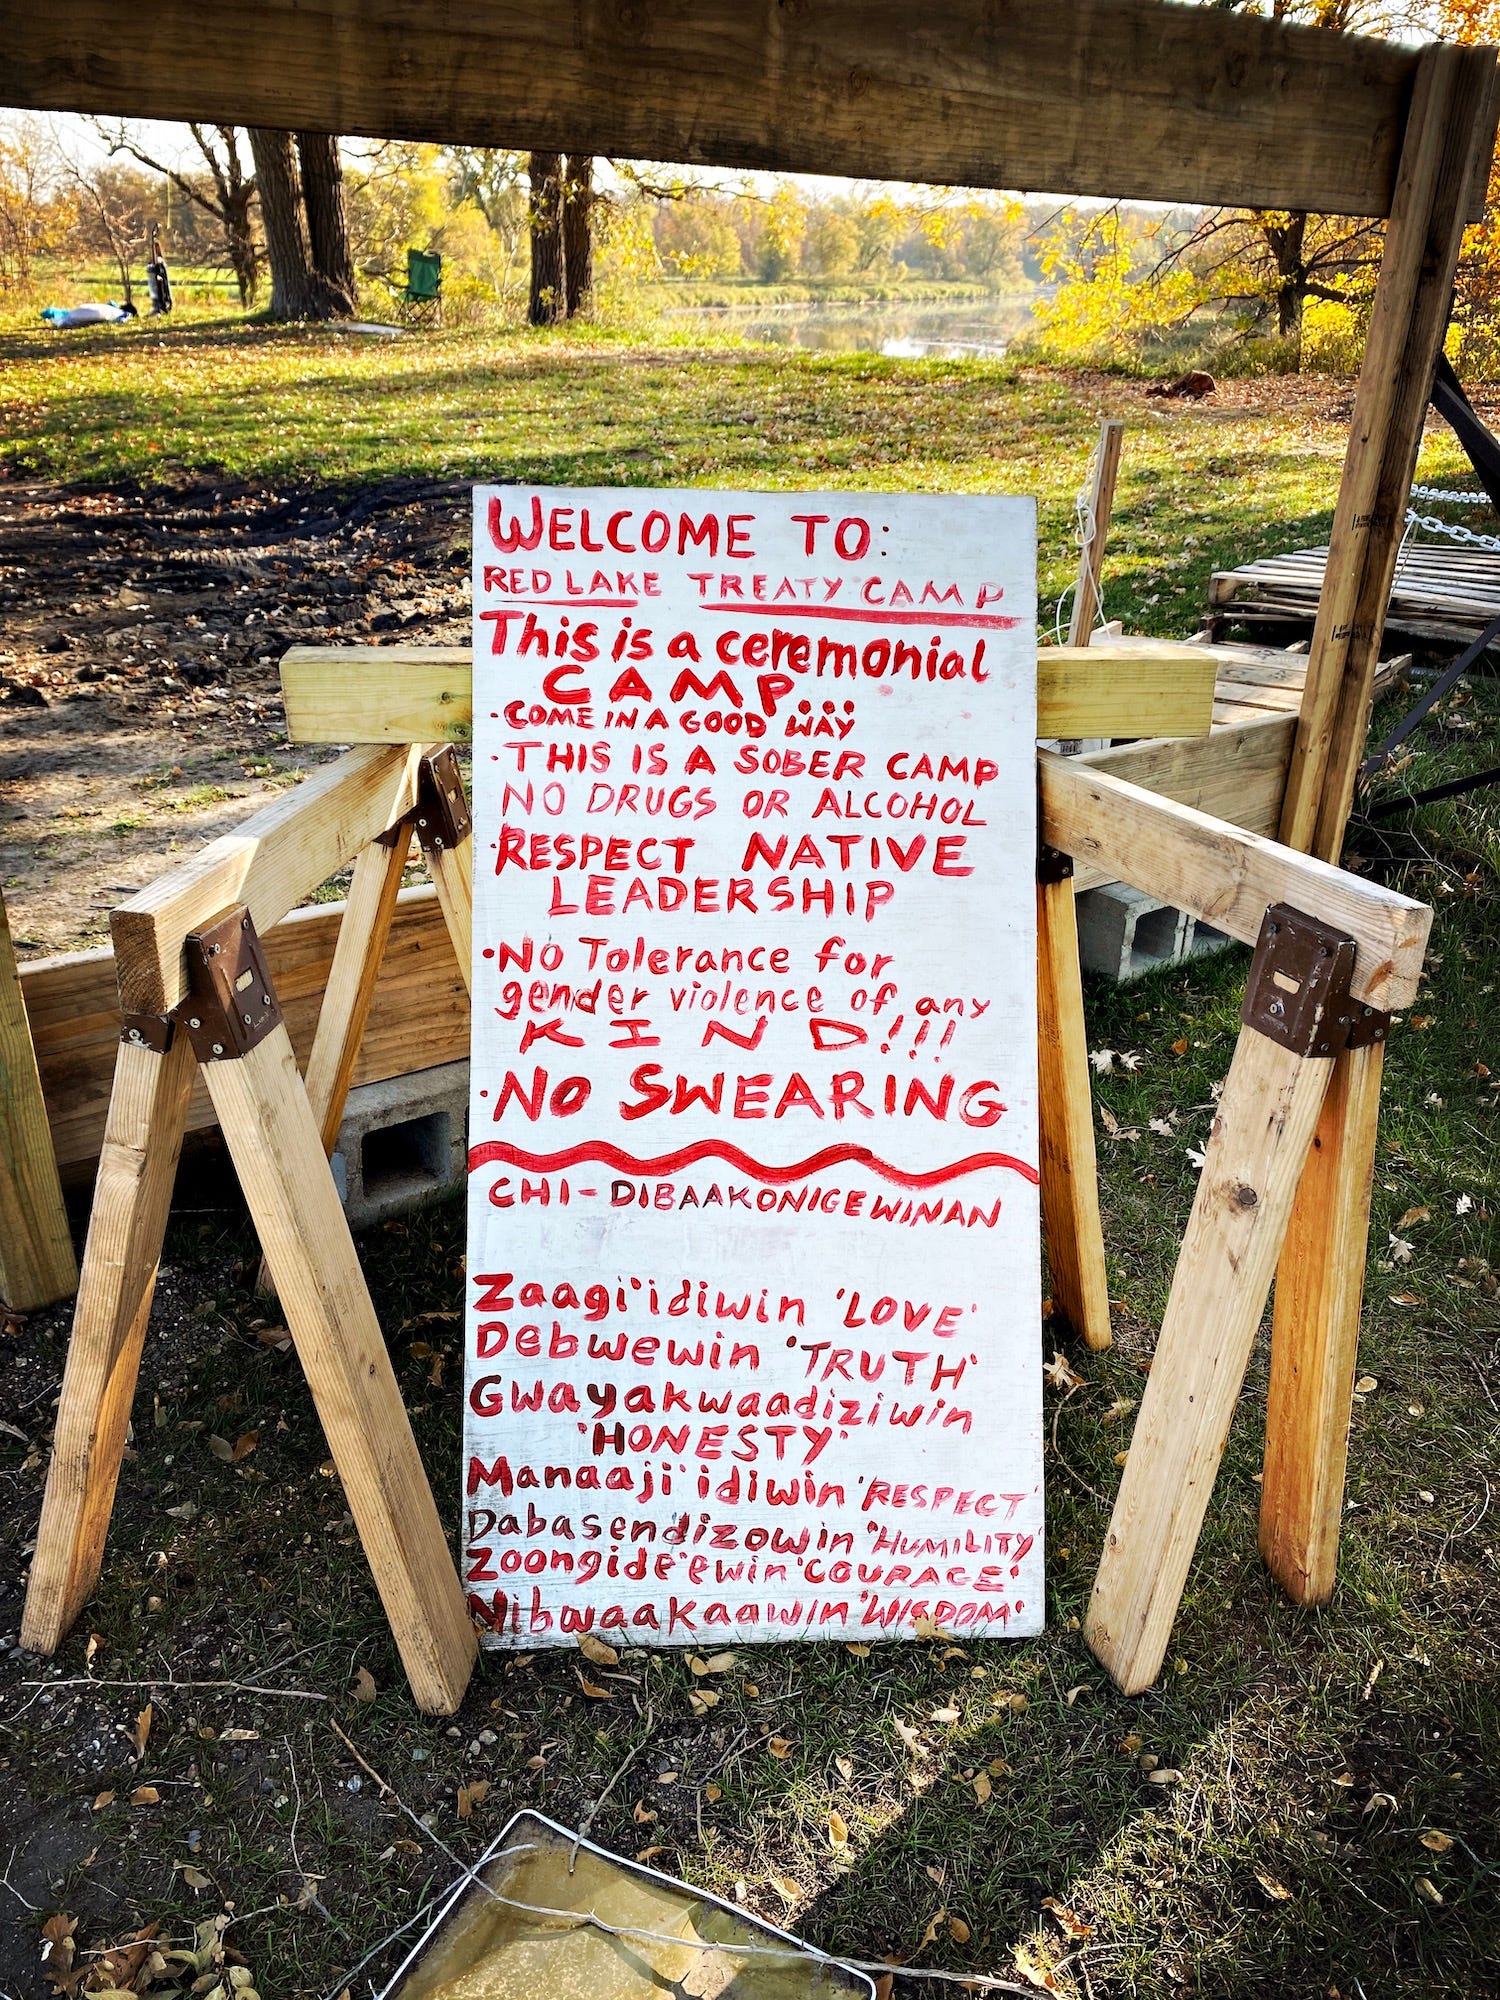 WELCOME TO:
RED LAKE TREATY CAMP
This is a ceremonial
CAMP...
· COME IN A GOOD WAY
· THIS IS A SOBER CAMP
NO DRUGS OR ALCOHOL
· RESPECT NATIVE
LEADERSHIP
· NO Tolerance for
gender violence of any
KIND!!!
· NO SWEARING
CHI-DIBAAKONIGEWINAN
Zaagi'idiwin 'LOVE'
Debwewin 'TRUTH'
Gwayakwaadiziwin
'HONESTY'
Manaaji'idiwin 'RESPECT'
Dabasendizowin 'HUMILITY'
Zoongide'ewin 'COURAGE'
Nibwaakaawin 'WISDOM'